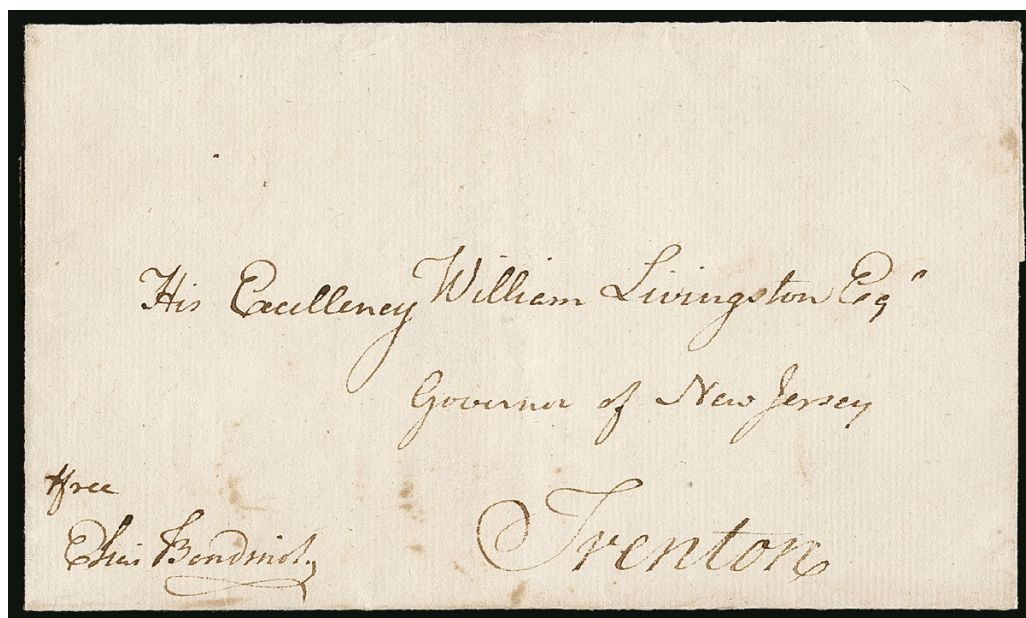 His Excellency William Livingston Esqr
Governor of New Jersey
ffree
Elias Boudinot
Trenton